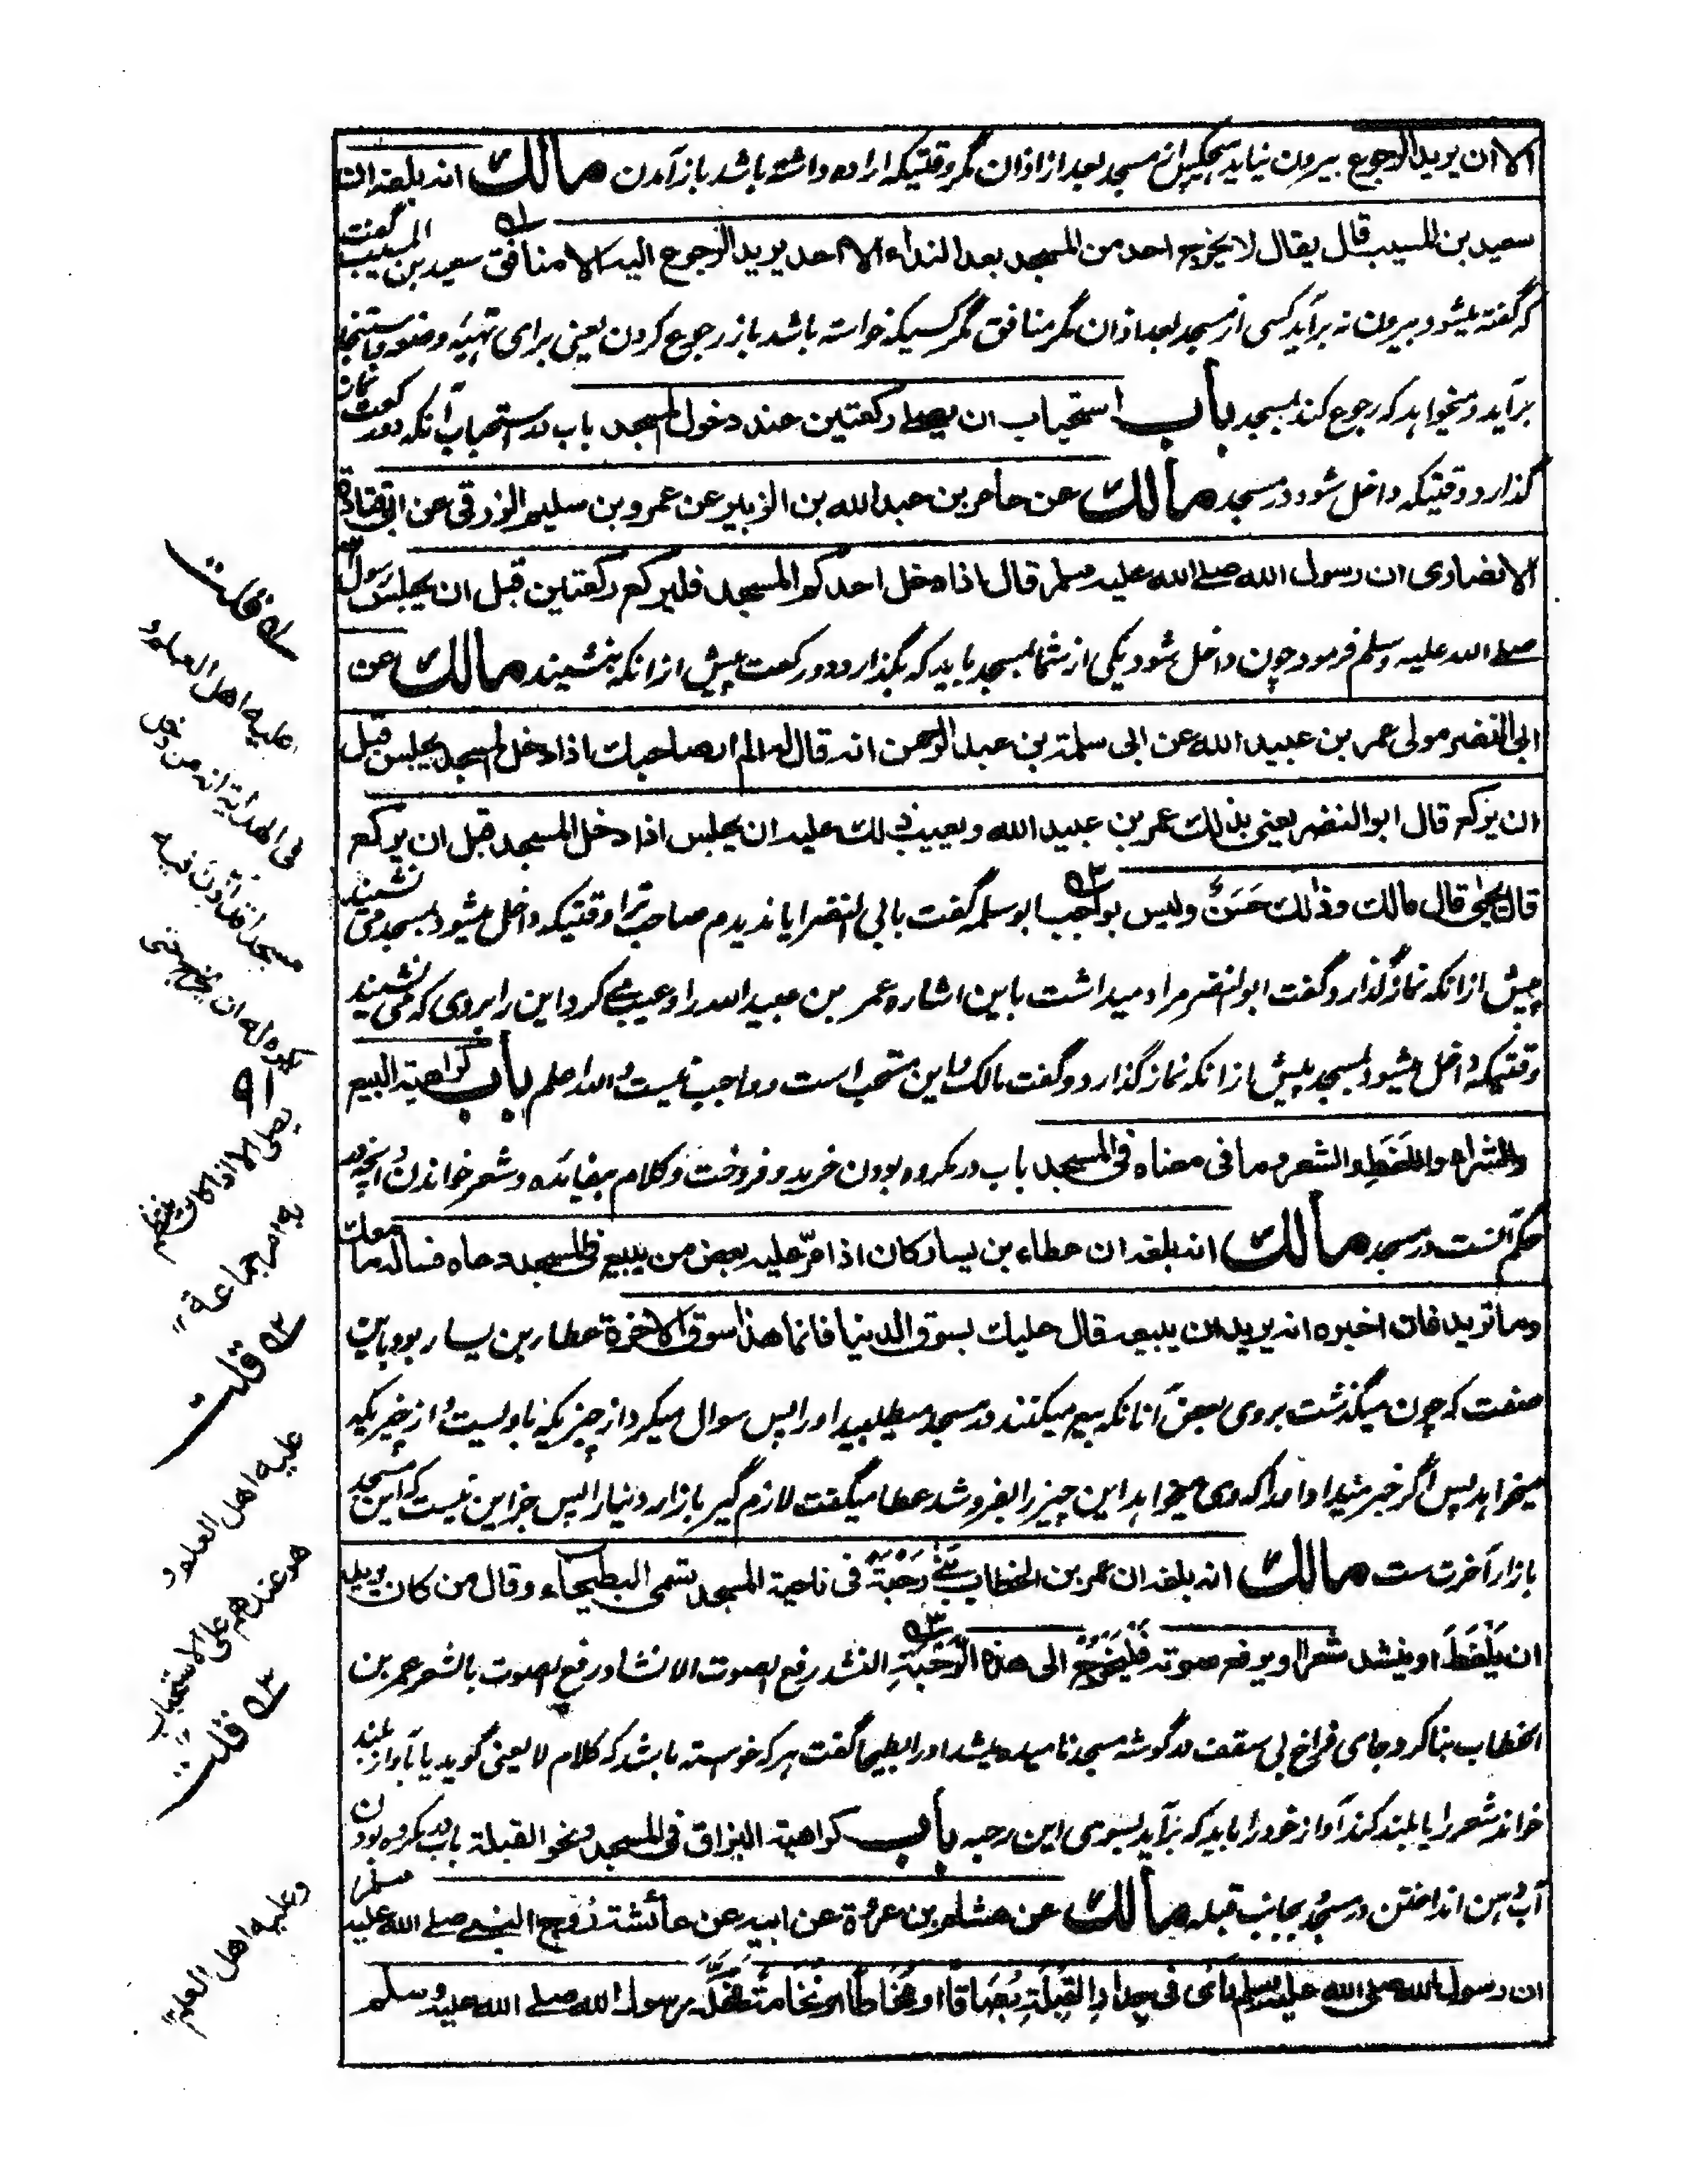 الا ان یرید الرجوع بیرون نیاید هیچکس از مسجد بعد از اذان مگر وقتیکه اراده داشته باشد باز آمدن مالك انه بلغه ان
سعید بن المسیب قال یقال لا یخرج احد من المسجد بعد النداء الا احد یرید الرجوع الیه الا منافق سعید بن المسیب گفت
که گفته میشود بیرون نه برآید کسی از مسجد بعد اذان مگر منافق مگر کسیکه خواسته باشد باز رجوع کردن یعنی برای تهیئه وضو و استنجا
برآید و میخواهد که رجوع کند بمسجد باب استحباب ان یصلے رکعتین عند دخول المسجد باب در استحباب آنکه دو رکعت نماز
گذارد وقتیکه داخل شود در مسجد مالك عن عامر بن عبد الله بن الزبیر عن عمرو بن سلیم الزرقی عن ابی قتادة
الانصاری ان رسول الله صلے الله علیه وسلم قال اذا دخل احدکم المسجد فلیرکع رکعتین قبل ان یجلس رسول
صلے الله علیه وسلم فرمود چون داخل شود یکی از شما بمسجد باید که بگذارد دو رکعت پیش ازانکه بنشیند مالك عن
ابی النضر مولی عمر بن عبید الله عن ابی سلمة بن عبد الرحمن انه قال له الم ار صاحبك اذا دخل المسجد یجلس قبل
ان یرکع قال ابو النضر یعنی بذلك عمر بن عبید الله و یعیب ذلك علیه ان یجلس اذا دخل المسجد قبل ان یرکع
قال یحیی قال مالك وذلك حَسَنٌ ولیس بواجب ابو سلمه گفت بابی النضر ایا ندیدم صاحب ترا وقتیکه داخل میشود بمسجد می نشیند
پیش ازانکه نماز گذارد و گفت ابو النضر مراد میداشت باین اشاره عمر بن عبید الله را و عیب می کرد این را بروی که می نشیند
وقتیکه داخل میشود بمسجد پیش ازانکه نماز گذارد و گفت مالک و این مستحب است و واجب نیست و الله اعلم باب کراهیة البیع
والشراء واللَغَطِ والشعر وما فی معناه فی المسجد باب در مکروه بودن خرید و فروخت و کلام بیفایده و شعر خواندن و آنچه در
حکم آنست در مسجد مالك انه بلغه ان عطاء بن یسار کان اذا مرّ علیه بعض من یبیع فی المسجد دعاه فساله ما معك
وما ترید فان اخبره انه یرید ان یبیعه قال علیك بسوق الدنیا فانما هذا سوق الاخرة عطار بن یسار بود باین
صفت که چون میگذشت بروی بعض آنانکه بیع میکنند در مسجد میطلبید او را پس سوال میکرد از چیزیکه با ویست و از چیزیکه
میخواهد پس اگر خبر میداد او را که وی میخواهد این چیز را بفروشد عطا میگفت لازم گیر بازار دنیا را پس جز این نیست که این مسجد
بازار آخرت ست مالك انه بلغه ان عمر بن الخطاب بنی رَحَبَةً فی ناحیة المسجد تسمی البطیحاء وقال من کان یرید
ان یَلْغَطَ او ینشد شعرا او یرفع صوته فَلْیَخْرُجْ الی هذه الرَّحَبَةِ النشد رفع الصوت الانشاد رفع الصوت بالشعر عمر بن
الخطاب بنا کرد جای فراخ بی سقف در گوشه مسجد نامیده میشد او را بطیحا گفت هر که خواسته باشد که کلام لایعنی گوید یا بآواز بلند
خواند شعر را یا بلند کند آواز خود را باید که برآید بسوی این رحبه باب کراهیة البزاق فی المسجد ونحو القبلة باب در مکروه بودن
آب دهن انداختن در مسجد و بجانب قبله مالك عن هشام بن عروة عن ابیه عن عائشة زوج النبی صلے الله علیه وسلم
ان رسول الله صلی الله علیه وسلم رأی فی جدار القِبْلَةِ بُصَاقًا او مُخَاطًا او نُخَامَةً فحَکَّه رسول الله صلے الله علیه وسلم
۱ه قلت
علیه اهل العلم و
فی الهدایة انه من دخل
مسجدا قد أُذِّن فیه
یکره له ان یخرج حتی
یصلی الا اذا کان ینتظم
به امر جماعة
۲ه قلت
علیه اهل العلم و
هو عندهم علی الاستحباب
۳ه قلت
وعلیه اهل العلم